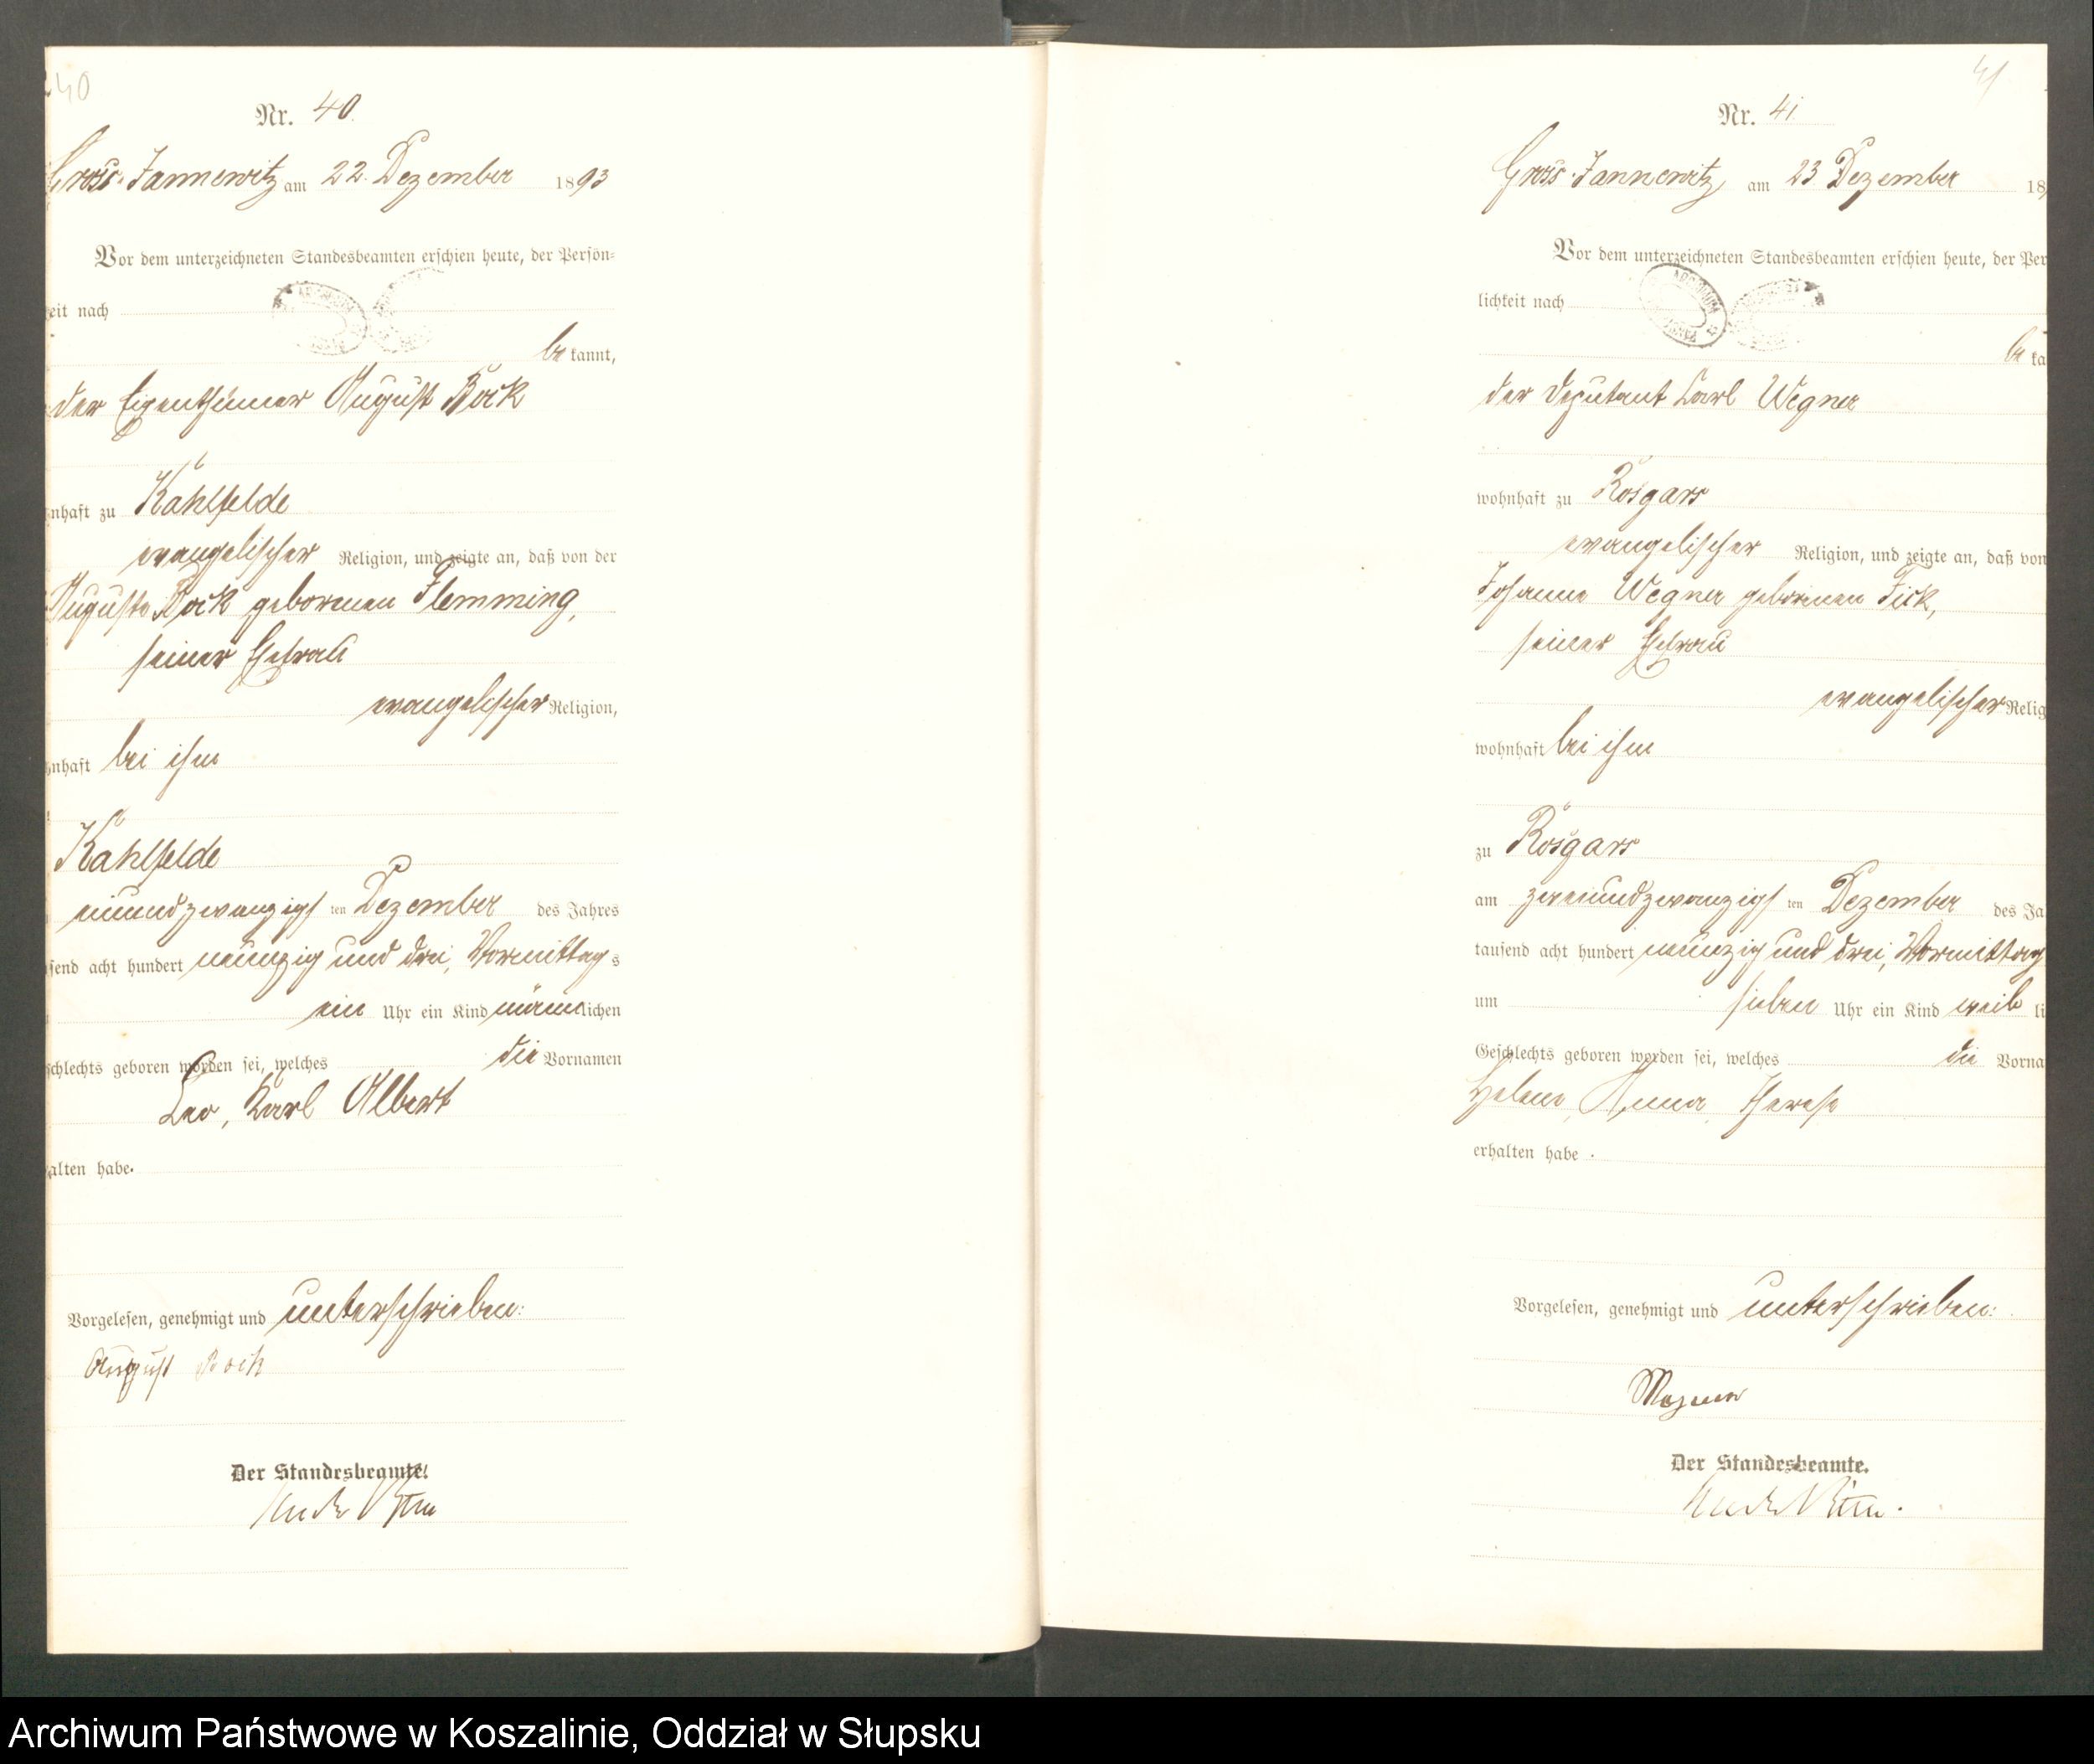 40
Nr. 40.
Gross-Jannewitz am 22. Dezember 1893
Vor dem unterzeichneten Standesbeamten erschien heute, der Persön-
eit nach
be kannt,
der Eigenthümer August Bock
nhaft zu Kahlfelde
evangelischer Religion, und zeigte an, daß von der
Auguste Bock geborenen Flemming,
seiner Ehefrau
evangelischer Religion,
nhaft bei ihm
Kahlfelde
einundzwanzigs ten Dezember des Jahres
send acht hundert neunzig und drei, Vormittag s
ein Uhr ein Kind männ lichen
schlechts geboren worden sei, welches die Vornamen
Leo, Karl Albert
alten habe.
Vorgelesen, genehmigt und unterschrieben:
August Bock
Der Standesbeamte.
41
Nr. 41.
Gross-Jannewitz am 23 Dezember 18
Vor dem unterzeichneten Standesbeamten erschien heute, der Per
lichkeit nach
be ka
der Deputant Carl Wegner
wohnhaft zu Rosgars
evangelischer Religion, und zeigte an, daß von
Johanne Wegner geborenen Fick,
seiner Ehefrau
evangelischer Relig
wohnhaft bei ihm
zu Rosgars
am zweiundzwanzigs ten Dezember des Ja
tausend acht hundert neunzig und drei, Vormittag
um sieben Uhr ein Kind weib li
Geschlechts geboren worden sei, welches die Vorna
Helene, Anna, Therese
erhalten habe.
Vorgelesen, genehmigt und unterschrieben:
Wegner
Der Standesbeamte.
Archiwum Państwowe w Koszalinie, Oddział w Słupsku